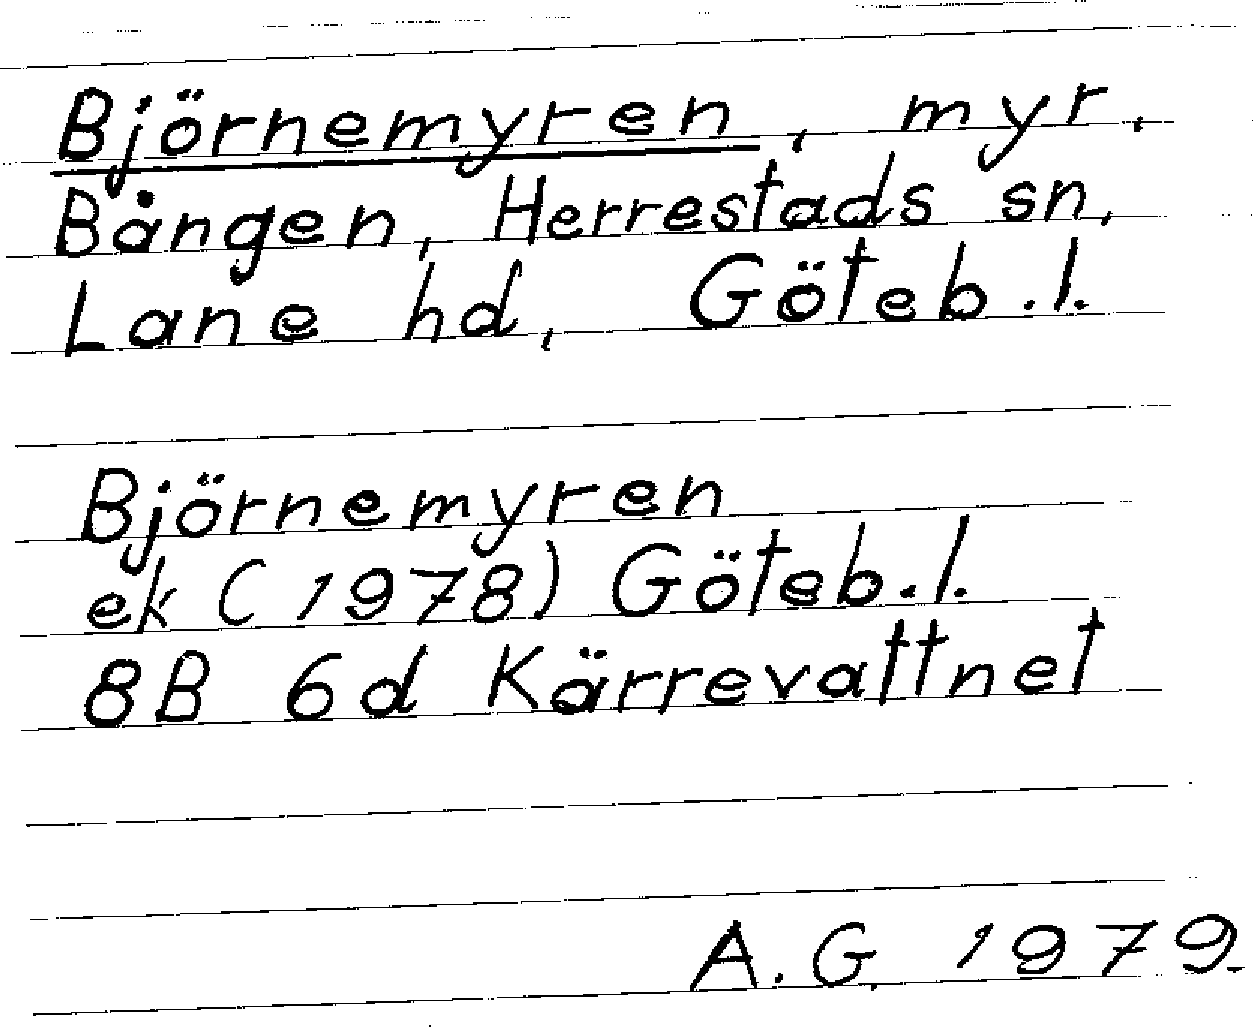 Björnemyren, myr.
Bången, Herrestads sn,
Lane hd, Göteb.l.
Björnemyren
ek (1978) Göteb.l.
8B 6d Kärrevattnet
A.G. 1979.